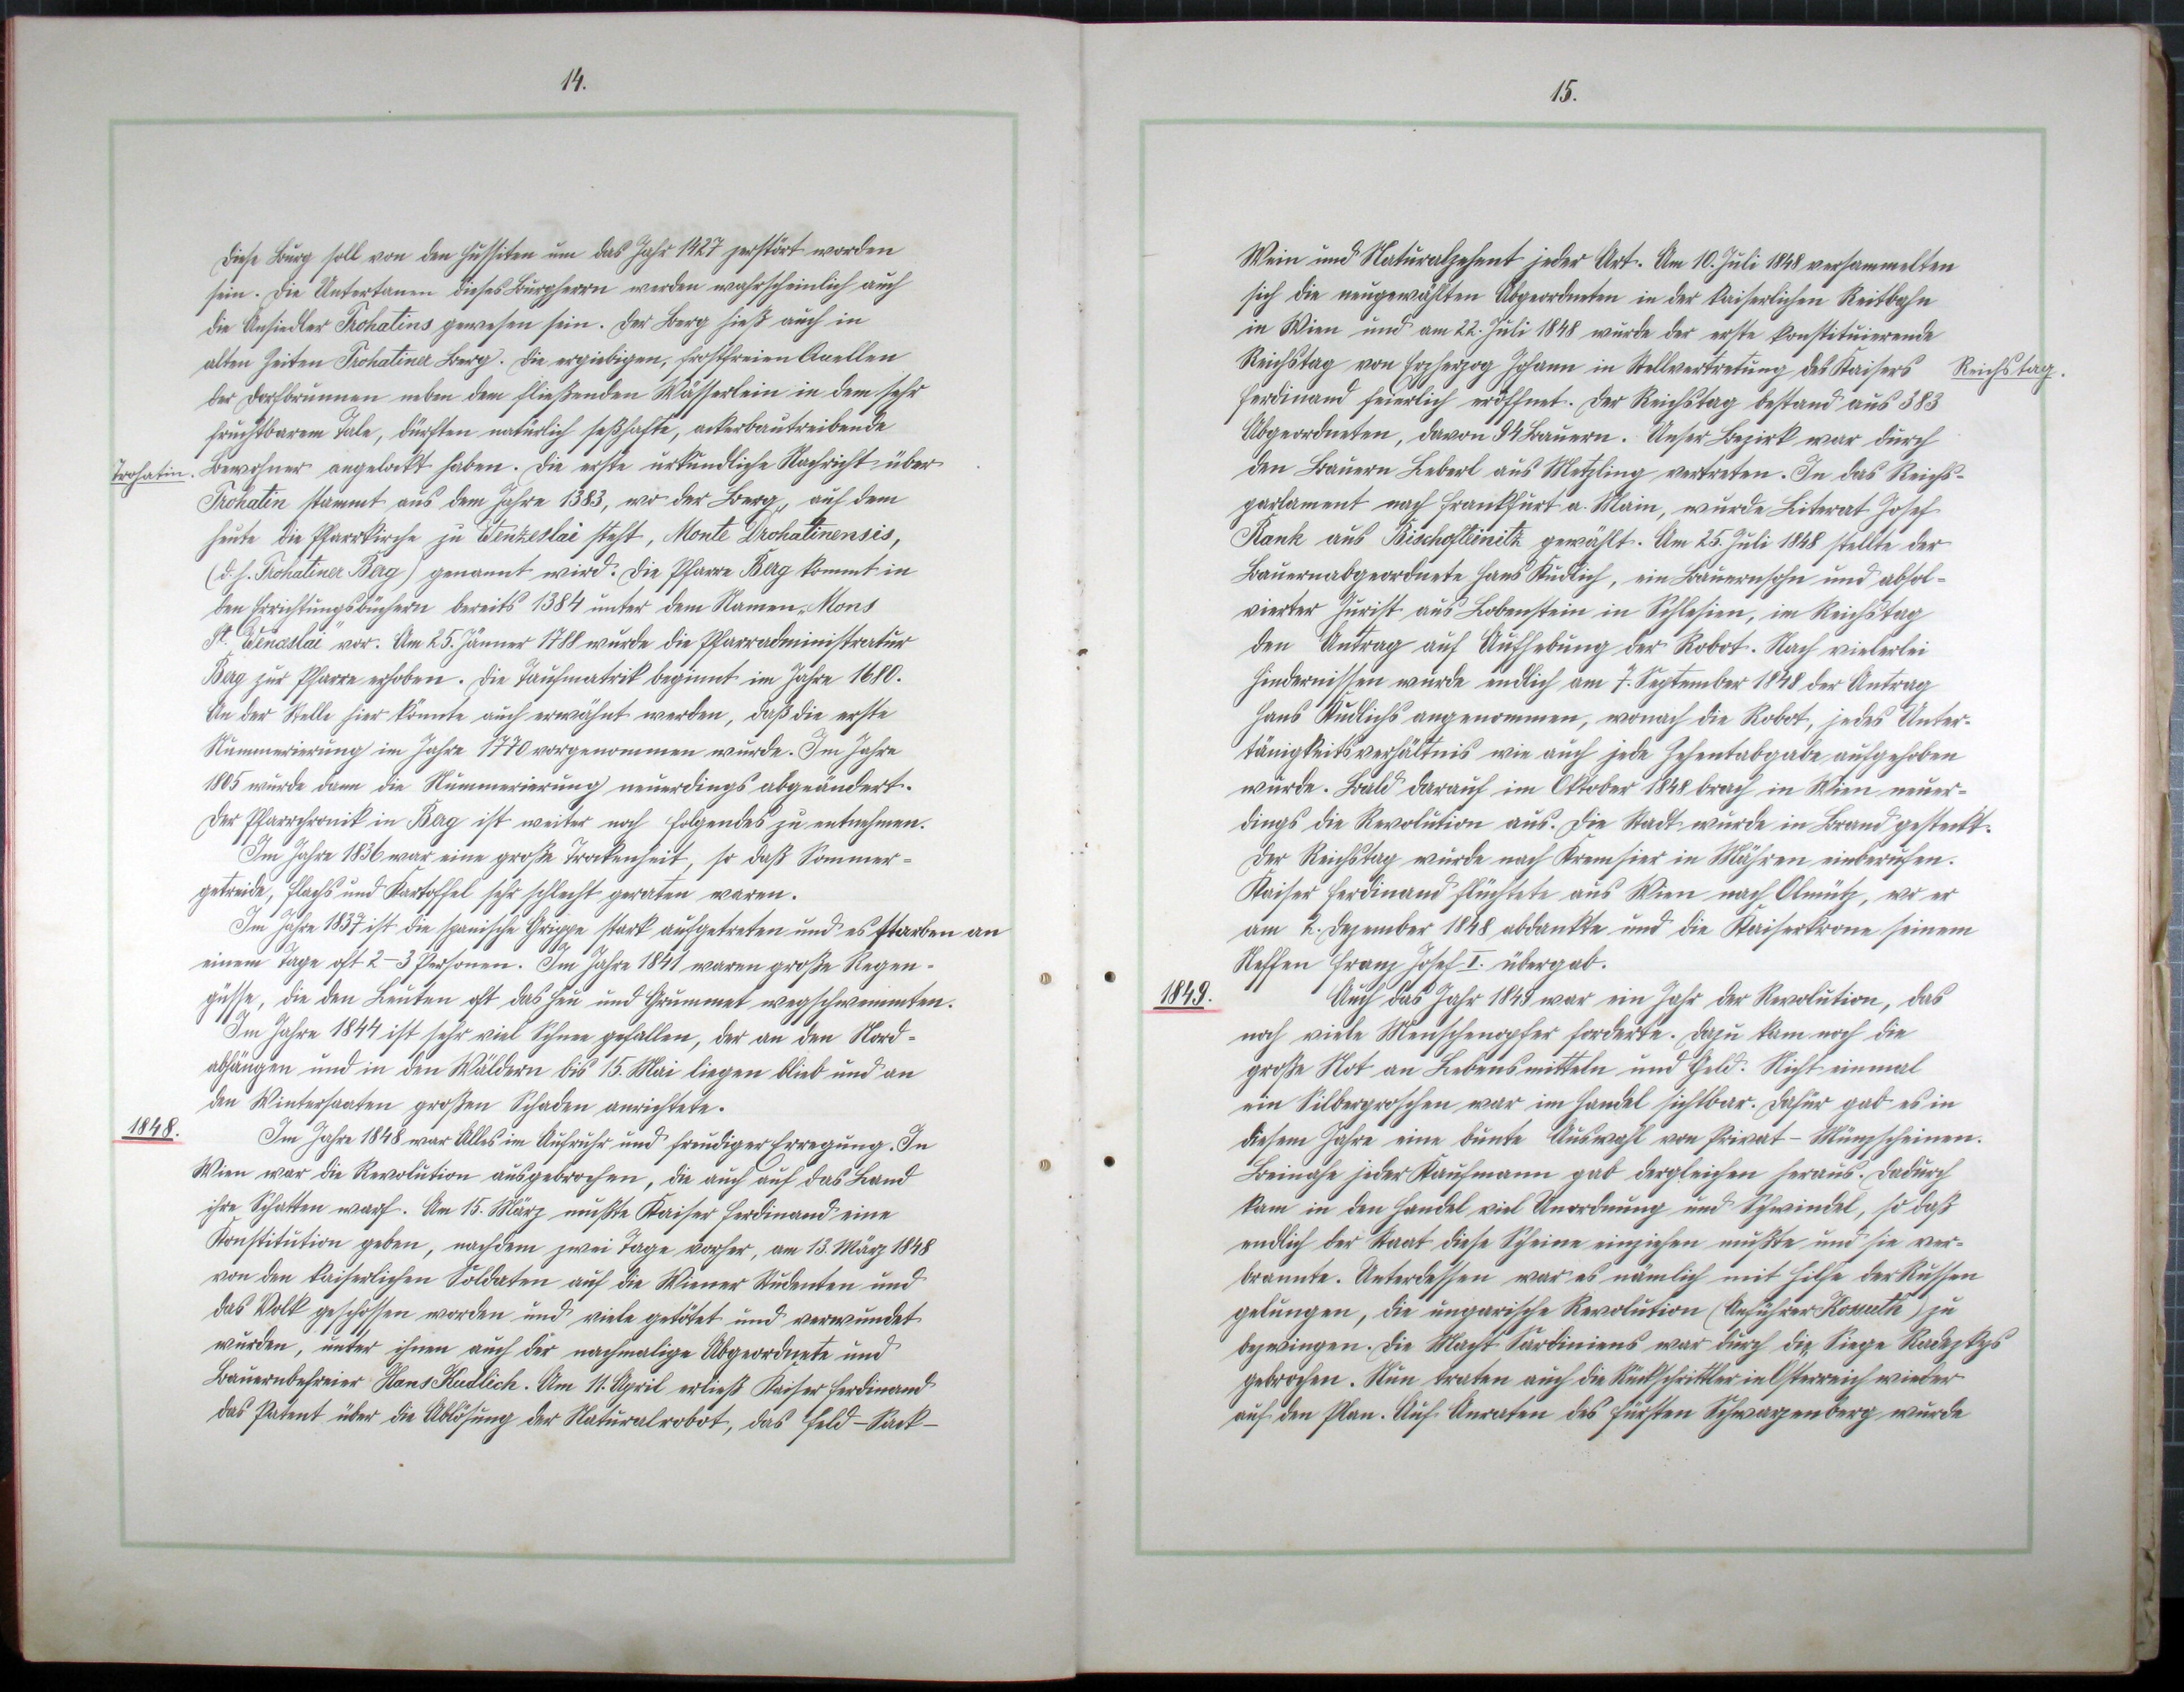 14.
Diese Burg soll von den Hussiten um das Jahr 1427 zerstört worden
sein. Die Untertanen dieses Burgherrn werden wahrscheinlich auch
die Ansiedler Trohatins gewesen sein. Der Berg hieß auch in
alten Zeiten Trohatiner Berg. Die ergiebigen, frostfreien Quellen
der Dorfbrunnen neben dem fließenden Wässerlein in dem sehr
fruchtbarem Tale, dürften natürlich seßhafte, ackerbautreibende
Trohatin.
Bewohner angelockt haben. Die erste urkundliche Nachricht über
Trohatin stammt aus dem Jahre 1383, wo der Berg, auf dem
heute die Pfarrkirche zu Wenzeslai steht, Monte Drohatinensis,
(d. h. Trohatiner Berg) genannt wird. Die Pfarre Berg kommt in
den Errichtungsbüchern bereits 1384 unter dem Namen „Mons
St. Wenceslai" vor. Am 25. Jänner 1788 wurde die Pfarradministratur
Berg zur Pfarre erhoben. Die Taufmatrik beginnt im Jahre 1680.
An der Stelle hier könnte auch erwähnt werden, daß die erste
Nummerierung im Jahre 1770 vorgenommen wurde. Im Jahre
1805 wurde dann die Nummerierung neuerdings abgeändert.
Der Pfarrchronik in Berg ist weiter noch folgendes zu entnehmen.
Im Jahre 1836 war eine große Trockenheit, so daß Sommer-
getreide, Flachs und Kartoffel sehr schlecht geraten waren.
Im Jahre 1837 ist die spanische Grippe stark aufgetreten und es starben an
einem Tage oft 2-3 Personen. Im Jahre 1841 waren große Regen-
güsse, die den Leuten oft das Heu und Grummet wegschwemmten.
Im Jahre 1844 ist sehr viel Schnee gefallen, der an den Nord-
abhängen und in den Wäldern bis 15. Mai liegen blieb und an
den Wintersaaten großen Schaden anrichtete.
1848.
Im Jahre 1848 war Alles im Aufruhr und freudiger Erregung. In
Wien war die Revolution ausgebrochen, die auch auf das Land
ihre Schatten warf. Am 15. März mußte Kaiser Ferdinand eine
Konstitution geben, nachdem zwei Tage vorher, am 13. März 1848
von den kaiserlichen Soldaten auf die Wiener Studenten und
das Volk geschossen worden und viele getötet und verwundet
wurden, unter ihnen auch der nachmalige Abgeordnete und
Bauernbefreier Hans Kudlich. Am 11. April erließ Kaiser Ferdinand
das Patent über die Ablösung der Naturalrobot, das Feld-Sack-
15.
Wein und Naturalzehent jeder Art. Am 10. Juli 1848 versammelten
sich die neugewählten Abgeordneten in der kaiserlichen Reitbahn
in Wien und am 22. Juli 1848 wurde der erste konstituierende
Reichstag von Erzherzog Johann in Stellvertretung des Kaisers
Reichstag.
Ferdinand feierlich eröffnet. Der Reichstag bestand aus 383
Abgeordneten, davon 94 Bauern. Unser Bezirk war durch
den Bauern Leberl aus Metzling vertreten. In das Reichs-
parlament nach Frankfurt a. Main, wurde Literat Josef
Rank aus Bischofteinitz gewählt. Am 25. Juli 1848 stellte der
Bauernabgeordnete Hans Kudlich, ein Bauernsohn und absol-
vierter Jurist aus Lobenstein in Schlesien, im Reichstag
den Antrag auf Aufhebung der Robot. Nach vielerlei
Hindernissen wurde endlich am 7. September 1848 der Antrag
Hans Kudlichs angenommen, wonach die Robot, jedes Unter-
tänigkeitsverhältnis wie auch jede Zehentabgabe aufgehoben
wurde. Bald darauf im Oktober 1848 brach in Wien neuer-
dings die Revolution aus. Die Stadt wurde in Brand gesteckt.
Der Reichstag wurde nach Kremsier in Mähren einberufen.
Kaiser Ferdinand flüchtete aus Wien nach Olmütz, wo er
am 2. Dezember 1848 abdankte und die Kaiserkrone seinem
Neffen Franz Josef I. übergab.
1849.
Auch das Jahr 1849 war ein Jahr der Revolution, das
noch viele Menschenopfer forderte. Dazu kam noch die
große Not an Lebensmitteln und Geld. Nicht einmal
ein Silbergroschen war im Handel sichtbar. Dafür gab es in
diesem Jahre eine bunte Auswahl von Privat-Münzscheinen.
Beinahe jeder Kaufmann gab dergleichen heraus. Dadurch
kam in den Handel viel Unordnung und Schwindel, so daß
endlich der Staat diese Scheine einziehen mußte und sie ver-
brannte. Unterdessen war es nämlich mit Hilfe der Russen
gelungen, die ungarische Revolution (Anführer Kossuth) zu
bezwingen. Die Macht Sardiniens war durch die Siege Radezkys
gebrochen. Nun traten auch die Rückschrittler in Österreich wieder
auf den Plan. Auf Anraten des Fürsten Schwarzenberg wurde